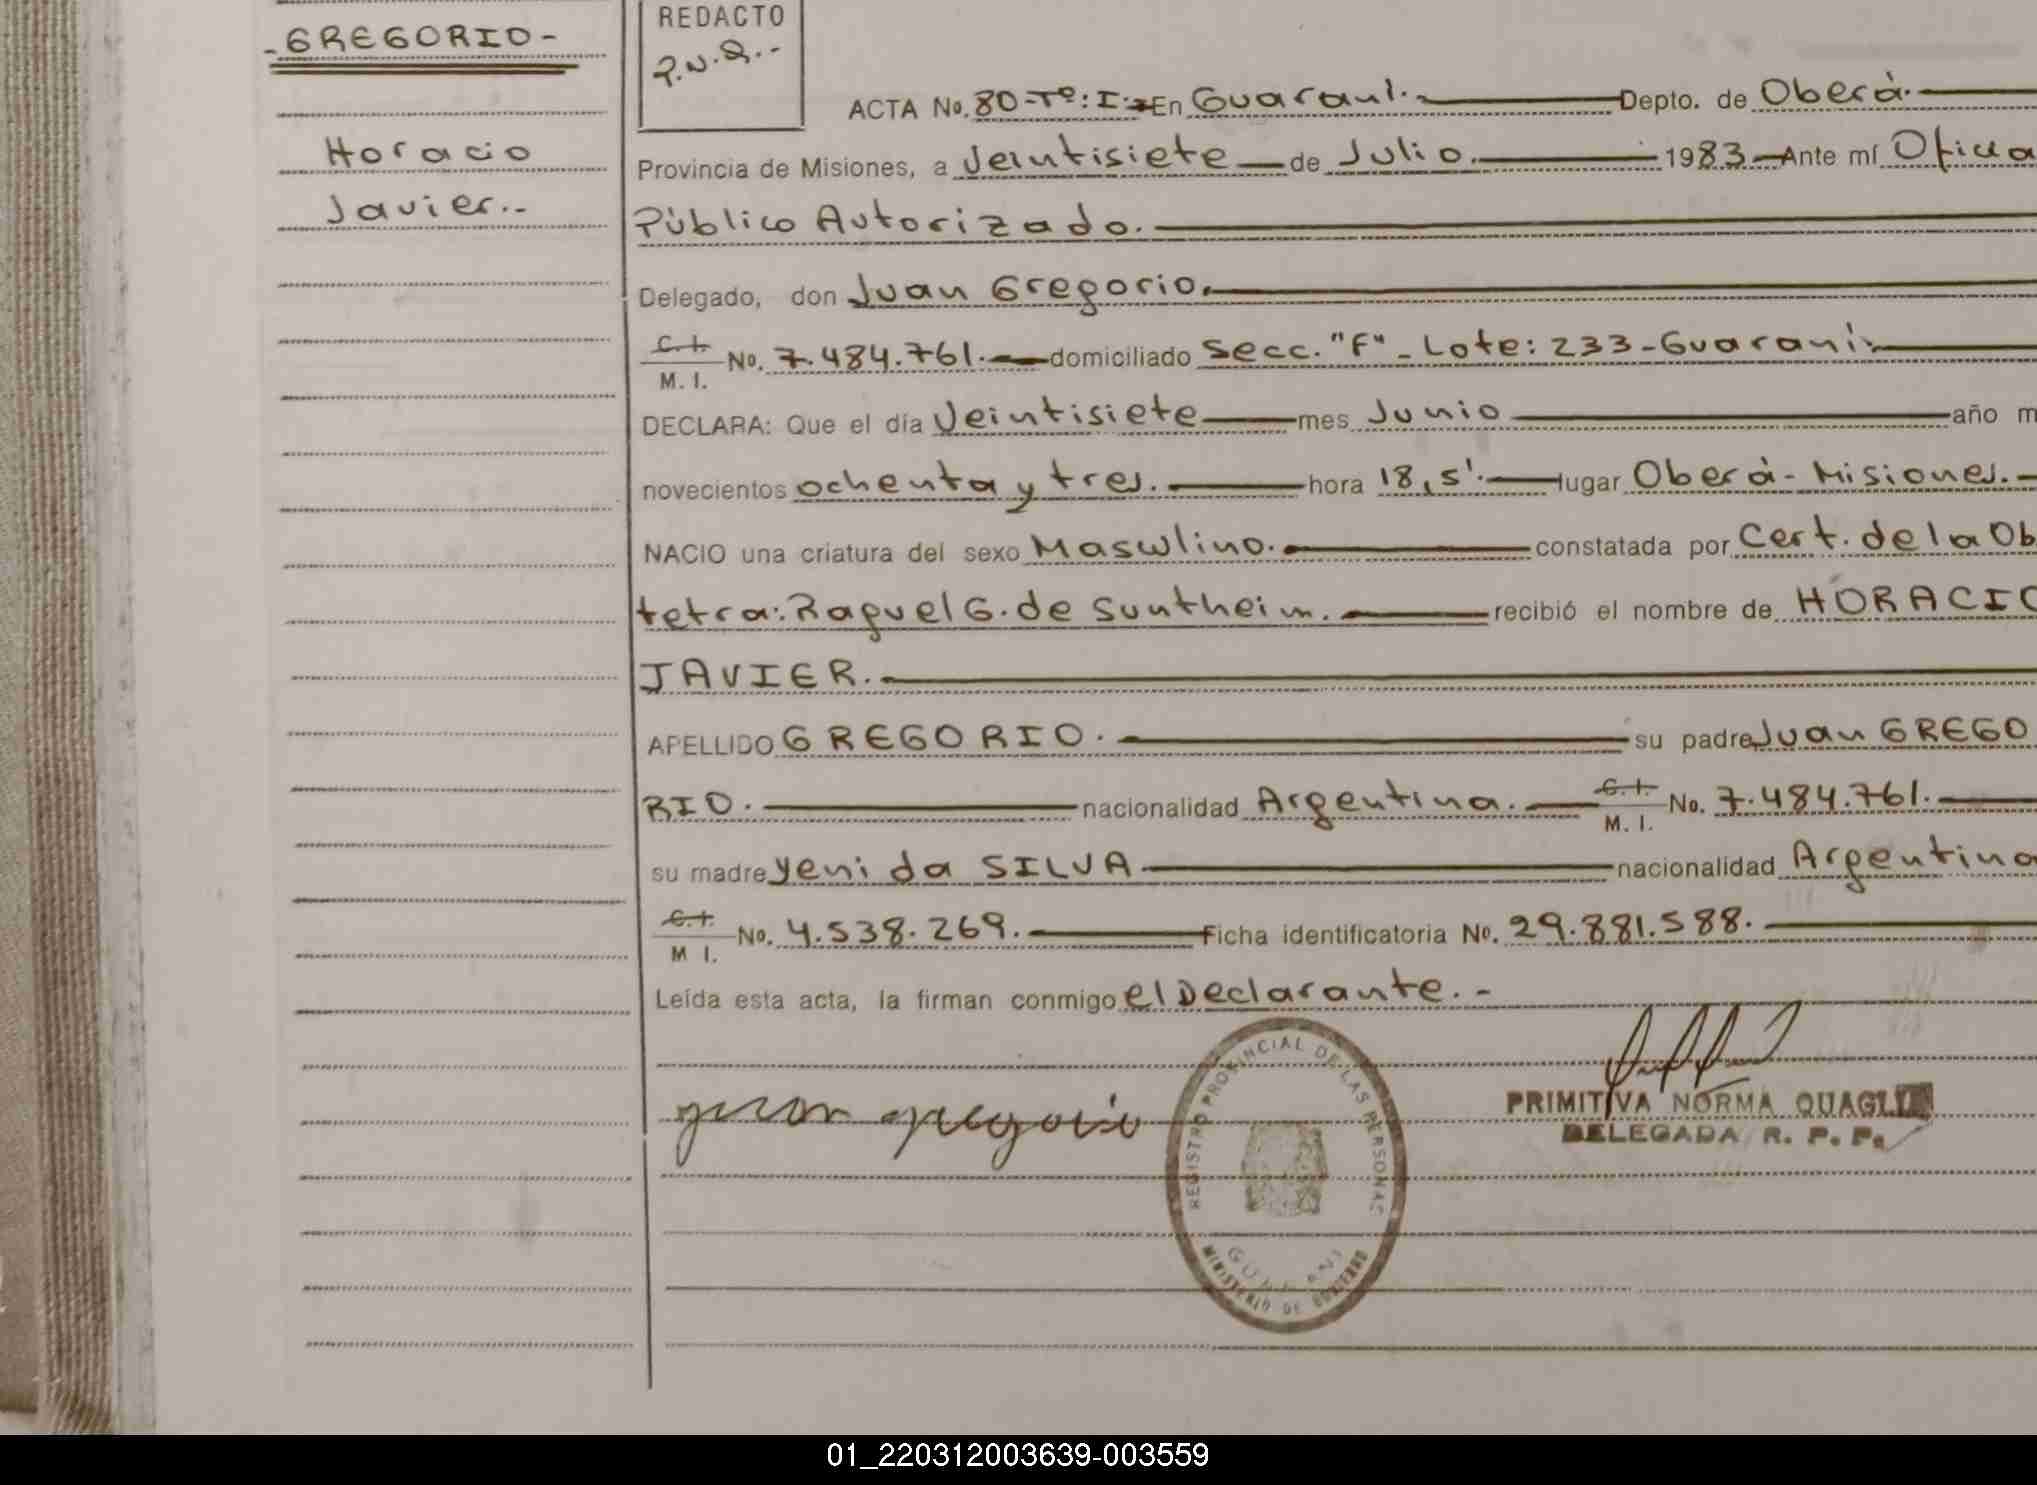 -GREGORIO-
Horacio
Javier.-
REDACTO
P.N.Q.-
ACTA No. 80-Tº:I- En Guaraní. Depto. de Oberá.
Provincia de Misiones, a Veintisiete de Julio. 1983 Ante mí Oficia
Público Autorizado.
Delegado, don Juan Gregorio.
C.I. M. I. No. 7.484.761. domiciliado Secc. "F" - Lote: 233 - Guaraní.
DECLARA: Que el día Veintisiete mes Junio año m
novecientos ochenta y tres. hora 18,5'. lugar Oberá - Misiones.
NACIO una criatura del sexo Masculino. constatada por Cert. de la Ob
tetra: Raquel G. de Suntheim. recibió el nombre de HORACIO
JAVIER.
APELLIDO GREGORIO. su padre Juan GREGO
RIO. nacionalidad Argentina. C.I. M. I. No. 7.484.761.
su madre Yeni da SILVA nacionalidad Argentina
C.I. M I. No. 4.538.269. Ficha identificatoria No. 29.881.588.
Leída esta acta, la firman conmigo el Declarante. -
juan gregorio
REGISTRO PROVINCIAL DE LAS PERSONAS
GUARANI
MINISTERIO DE GOBIERNO
PRIMITIVA NORMA QUAGLIA
DELEGADA R. P. P.
01_220312003639-003559